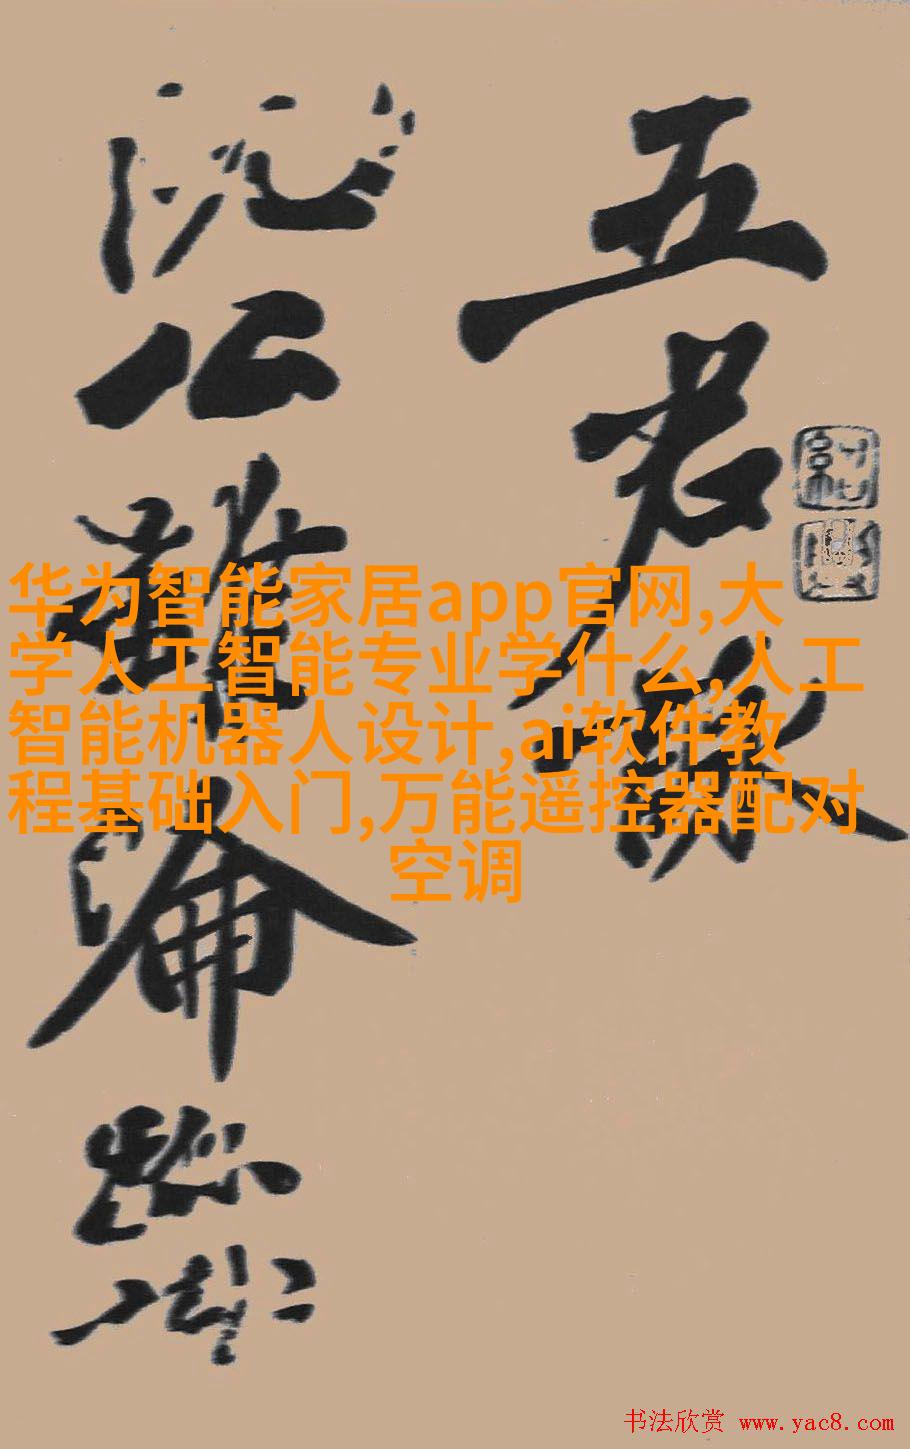 五君詠
阮公雖淪跡識
华为智能家居app官网,大
学人工智能专业学什么,人工
智能机器人设计,ai软件教
程基础入门,万能遥控器配对
空调
书法欣赏 www.yac8.com